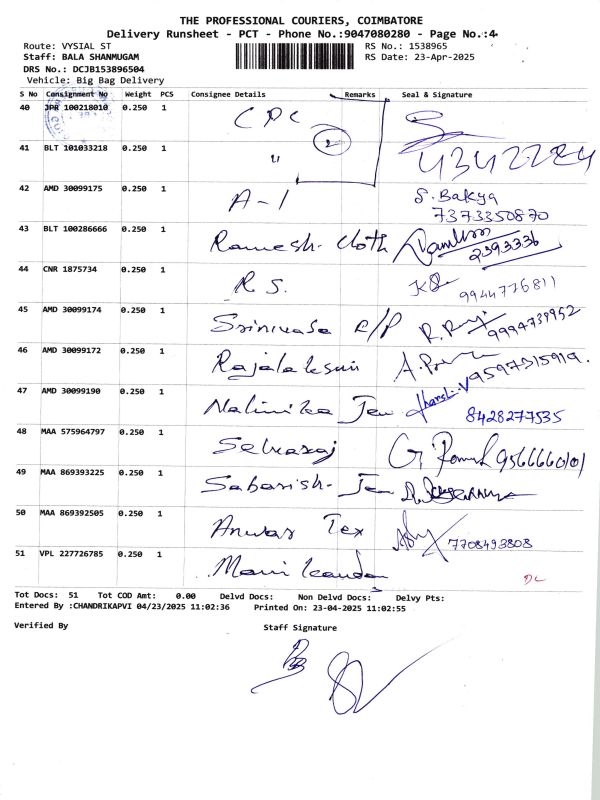 THE PROFESSIONAL COURIERS, COIMBATORE
Delivery Runsheet - PCT - Phone No.:9047080280 - Page No.:4
Route: VYSIAL ST
RS No.: 1538965
Staff: BALA SHANMUGAM
RS Date: 23-Apr-2025
DRS No.: DCJB153896504
Vehicle: Big Bag Delivery
S No Consignment No Weight PCS Consignee Details Remarks Seal & Signature
40 JPR 100218010 0.250 1 CPC
41 BLT 101033218 0.250 1 " 2 4342284
42 AMD 30099175 0.250 1 A-1 S. Bakya 7373350870
43 BLT 100286666 0.250 1 Ramesh. Cloth 2393336
44 CNR 1875734 0.250 1 R S. 9944776811
45 AMD 30099174 0.250 1 Srinivasa E/P 9994739952
46 AMD 30099172 0.250 1 Rajalaksmi 9597315919.
47 AMD 30099190 0.250 1 Nalinika Jew 8428277535
48 MAA 575964797 0.250 1 Selvaraj 9566660101
49 MAA 869393225 0.250 1 Sabarish. Jew
50 MAA 869392505 0.250 1 Anwar Tex 7708493808
51 VPL 227726785 0.250 1 Manikandan DL
Tot Docs: 51 Tot COD Amt: 0.00 Delvd Docs: Non Delvd Docs: Delvy Pts:
Entered By :CHANDRIKAPVI 04/23/2025 11:02:36 Printed On: 23-04-2025 11:02:55
Verified By Staff Signature